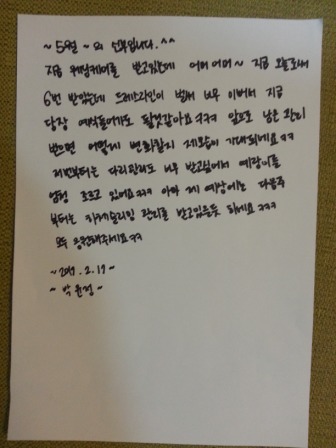 ~ 5월 ~ 의 신부입니다. ^^
지금 웨딩케어를 받고있는데 어머 어머~ 지금 오늘로써
6번 받았는데 드레스라인이 벌써 너무 이뻐서 지금
당장 예식들어가도 될것같아요 ㅋㅋㅋ 앞으로 남은 관리
받으면 어떻게 변화할지 제모습이 기대되네요 ㅋㅋ
저번부터는 다리관리도 너무 받고싶어서 예랑이를
엄청 조르고 있어요 ㅋㅋㅋ 아마 제 예상에는 다음주
부터는 하체슬리밍 관리를 받고있을듯 하네요 ㅋㅋㅋ
모두 응원해주세요 ㅋㅋ
~ 2017. 2. 17 ~
~ 박윤정 ~